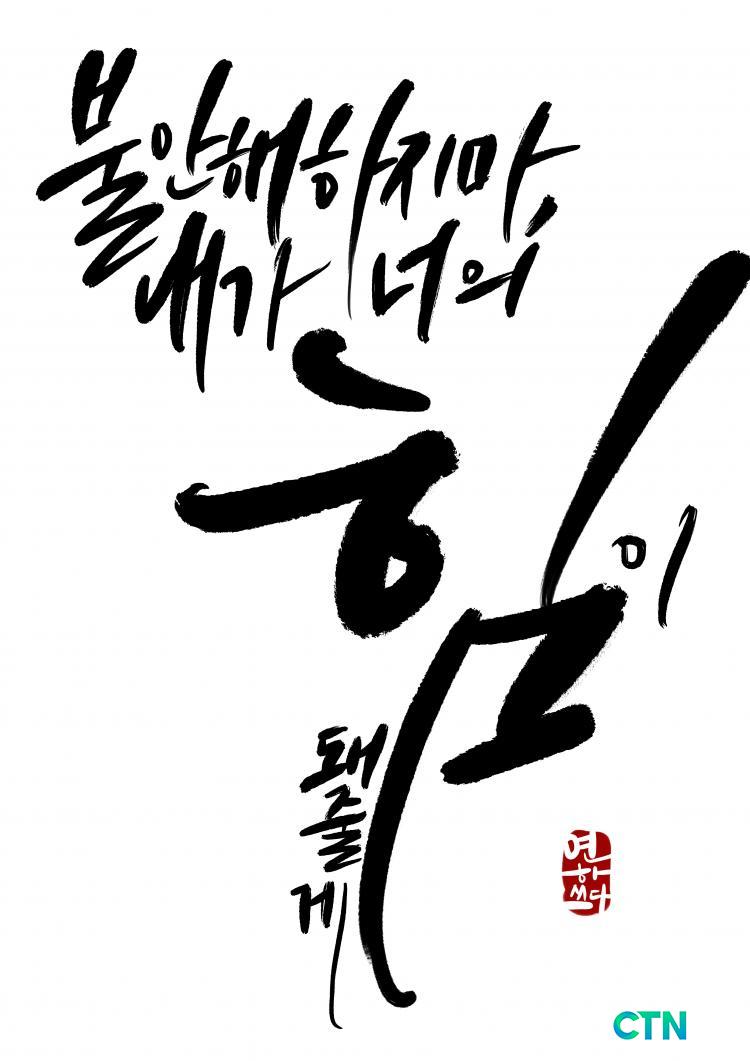 불안해하지마,
내가 너의
힘이
돼
줄
게
연하
쓰다
CTN